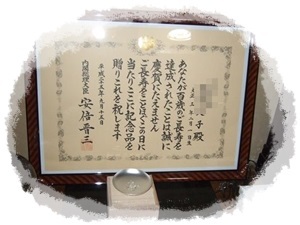 子殿
あなたが百歳のご長寿を
達成されたことは誠に
慶賀にたえません
ご長寿をことほぐこの日に
当たりここに記念品を
贈りこれを祝します
平成二十五年九月十五日
内閣総理大臣 安倍晋三